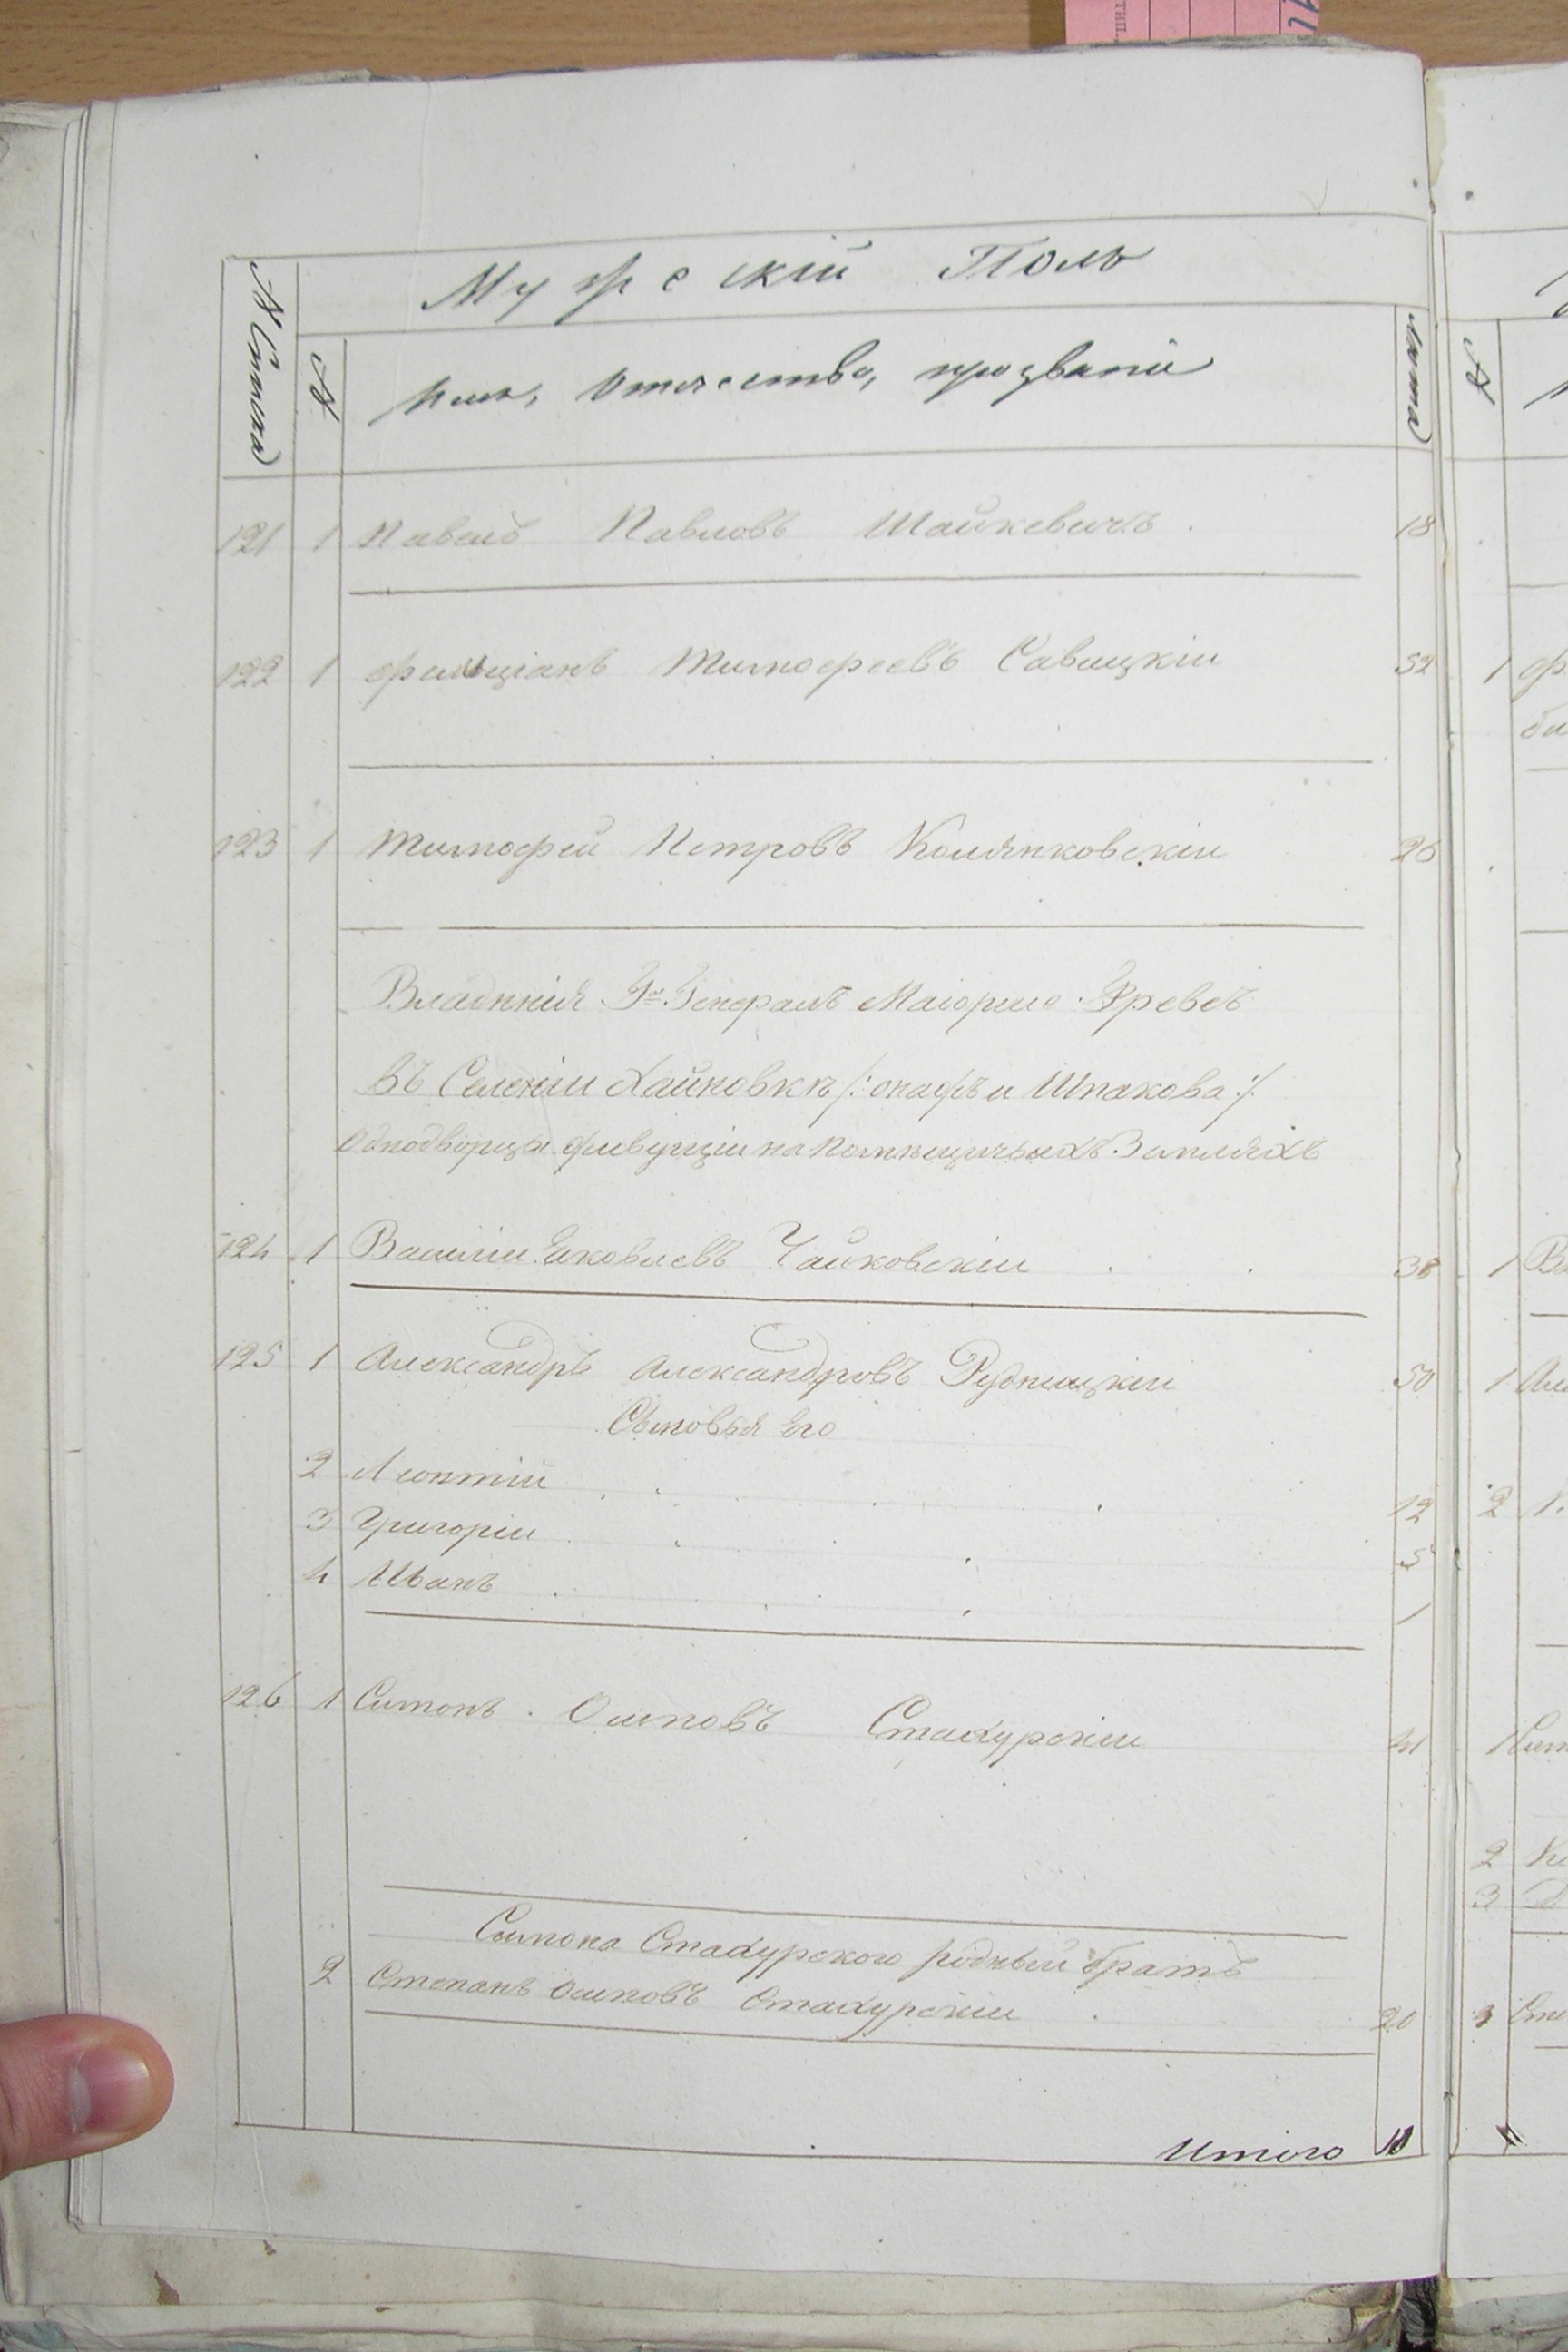 Мужескій Полъ
№ Списка
№
Имя, Отечество, прозваніи
Лета
121 1 Павелъ Павловъ Шайкевичъ 18
122 1 Фелиціанъ Тимофеевъ Савицкіи 52 1
123 1 Тимофей Петровъ 26
Владѣнія Гжи Генералъ Маіорше Гревсъ
въ Селеніи Хайновкѣ /: онажъ и Шпакова :/
Однодворцы живущіи на Помѣщичьихъ Земляхъ
124 1 Василіи Яковлевъ Чайковскіи 38 1
125 1 Александръ Александровъ Рудницкіи 50 1
Сыновья Его
2 Леонтій 12 2
3 Григоріи 5
4 Иванъ 1
126 1 Симонъ Осиповъ Стахурскіи 41 1
2
3
Симона Стахурского родный братъ
2 Степанъ Осиповъ Стахурскіи 20 3
Итого 10